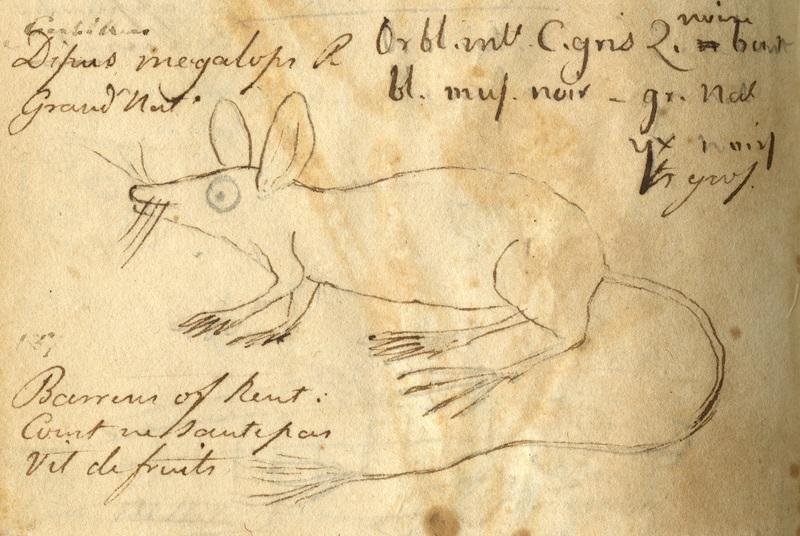 Dipus megalops R
Grand Nat.
Or bl. mtt. C. gris 2. noire bout
bl. mus. noir - gr. Nat
yx noirs
trs gros.
Barrens of Kent.
Court ne saute pas
Vit de fruits